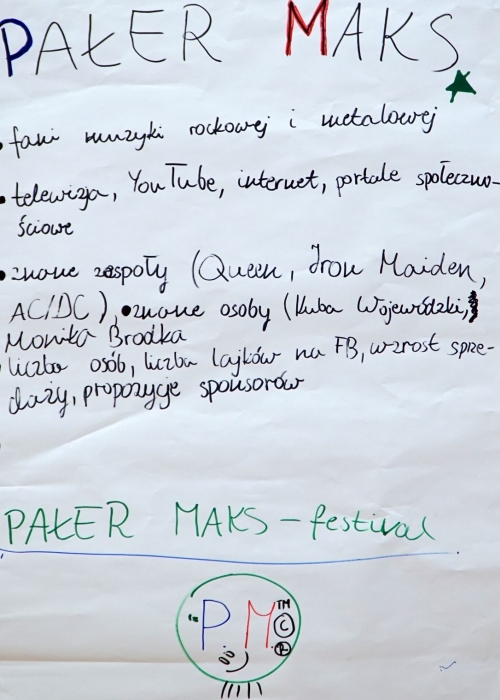 PAŁER MAKS
• fani muzyki rockowej i metalowej
• telewizja, YouTube, internet, portale społeczno-
ściowe
• znane zespoły (Queen, Iron Maiden,
AC/DC), • znane osoby (Kuba Wojewódzki,
Monika Brodka
liczba osób, liczba lajków na FB, wzrost sprze-
daży, propozycje sponsorów
PAŁER MAKS - festival
PM TM © ®